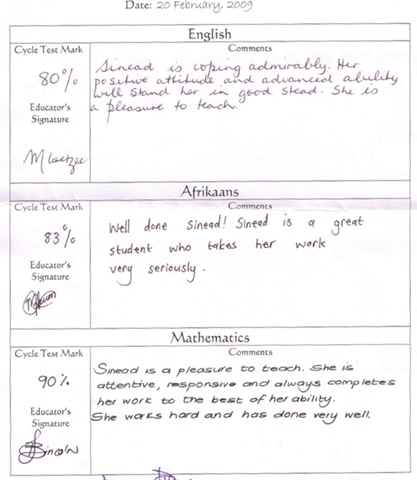 Date: 20 February, 2009
English
Cycle Test Mark
Comments
80%
Sinead is coping admirably. Her
positive attitude and advanced ability
will stand her in good stead. She is
a pleasure to teach.
Educator's
Signature
M Coetzee
Afrikaans
Cycle Test Mark
Comments
83%
Well done Sinead! Sinead is a great
student who takes her work
very seriously.
Educator's
Signature
Mathematics
Cycle Test Mark
Comments
90%
Sinead is a pleasure to teach. She is
attentive, responsive and always completes
her work to the best of her ability.
She works hard and has done very well.
Educator's
Signature